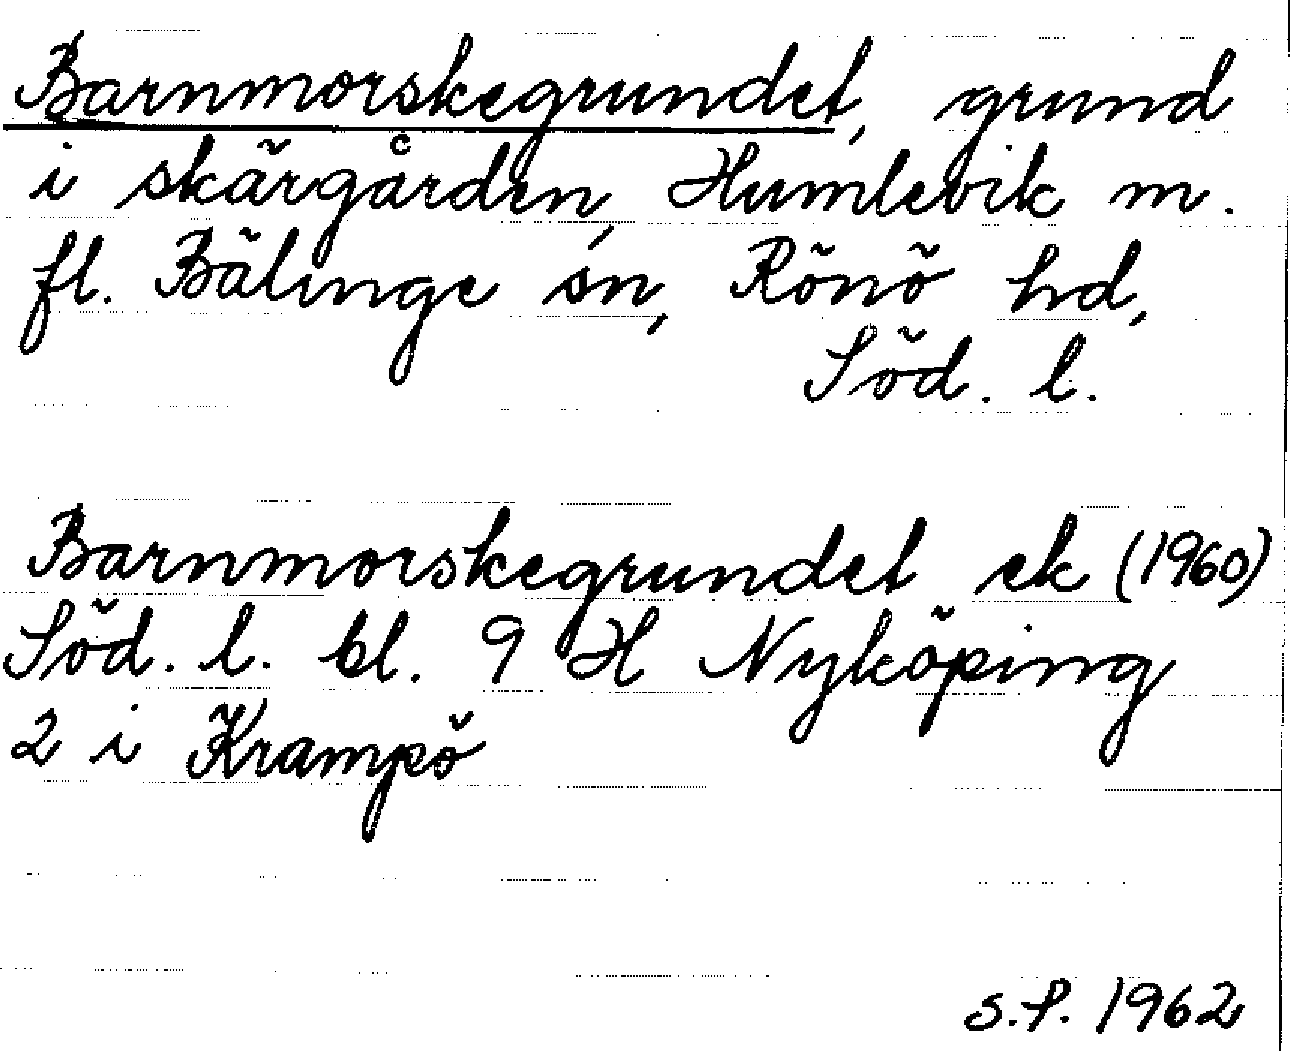 Barnmorskegrundet, grund
i skärgården, Humlevik m.
fl. Bälinge sn, Rönö hd,
Söd. l.
Barnmorskegrundet ek (1960)
Söd. l. bl. 9 H Nyköping
2 i Krampö
S.P. 1962